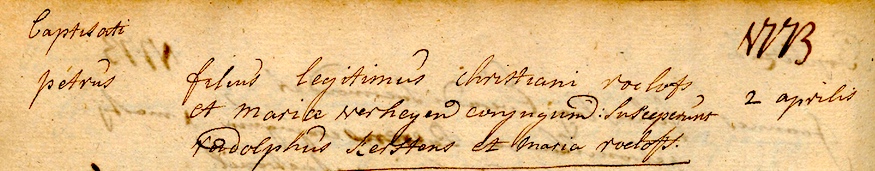 baptisati 1773
petrus filius legitimus christiani roelofs
et mariæ verheyen conjugum: Susceperunt 2 aprilis
rodolphus kerstens et maria roelofs.